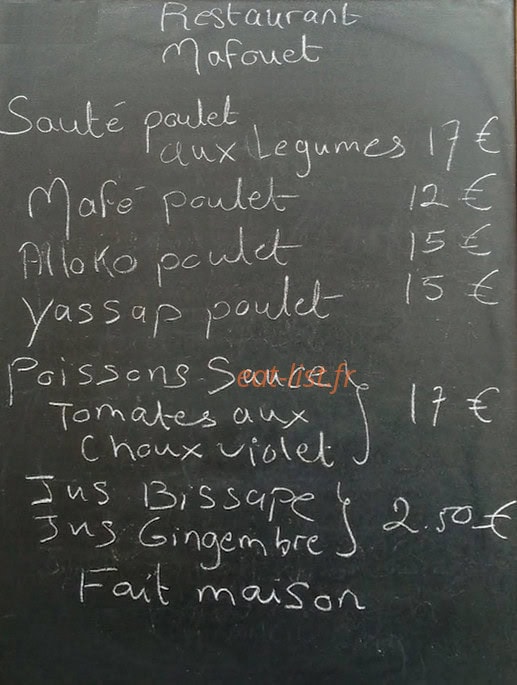 Restaurant
Mafouet
Sauté poulet
aux Legumes 17 €
Mafé poulet 12 €
Alloko poulet 15 €
Yassap poulet 15 €
Poissons Sauce
Tomates aux 17 €
Choux violet
Jus Bissape
Jus Gingembre 2.50 €
Fait maison
eat-list.fr